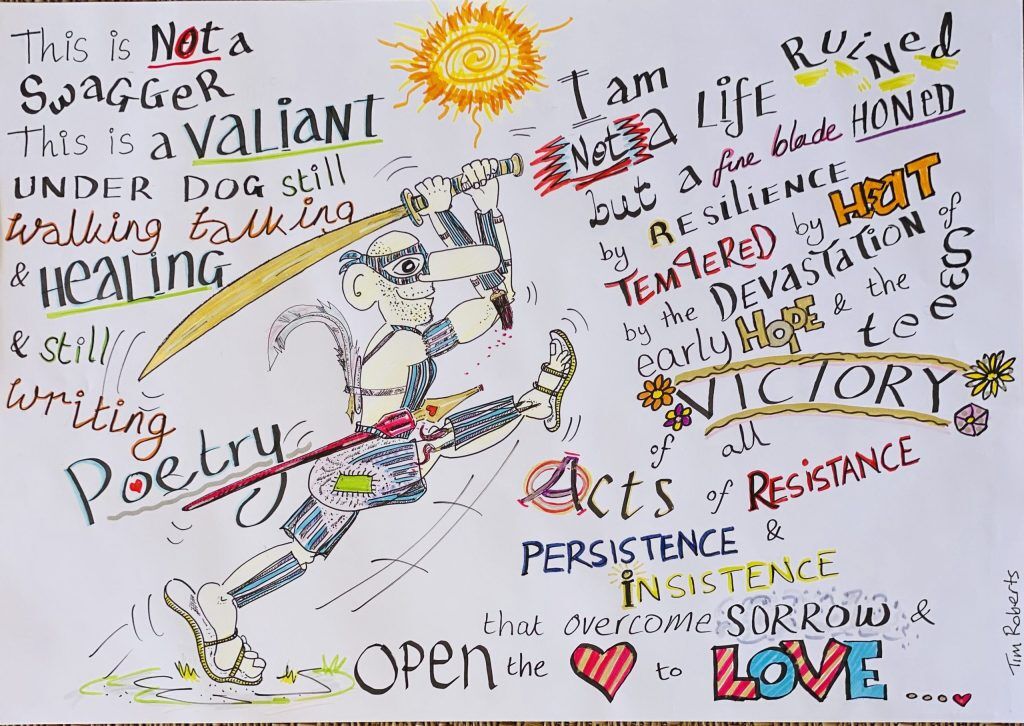 This is Not a
SwaGGeR
This is a VALiANT
UNDER DOG still
walking talking
& HEALiNG
& still
writing
Poetry
I am
Not a Life Ruined
but a fine blade HONED
by RESILIENCE
TEMPERED by HEAT
by the DEVASTATiON of
early HOPE & the Sweetee
VICTORY
of all
Acts of RESISTANCE
PERSISTENCE &
iNSISTENCE
that overcome SORROW &
OPEN the ♥ to LOVE ....♥
Tim Roberts